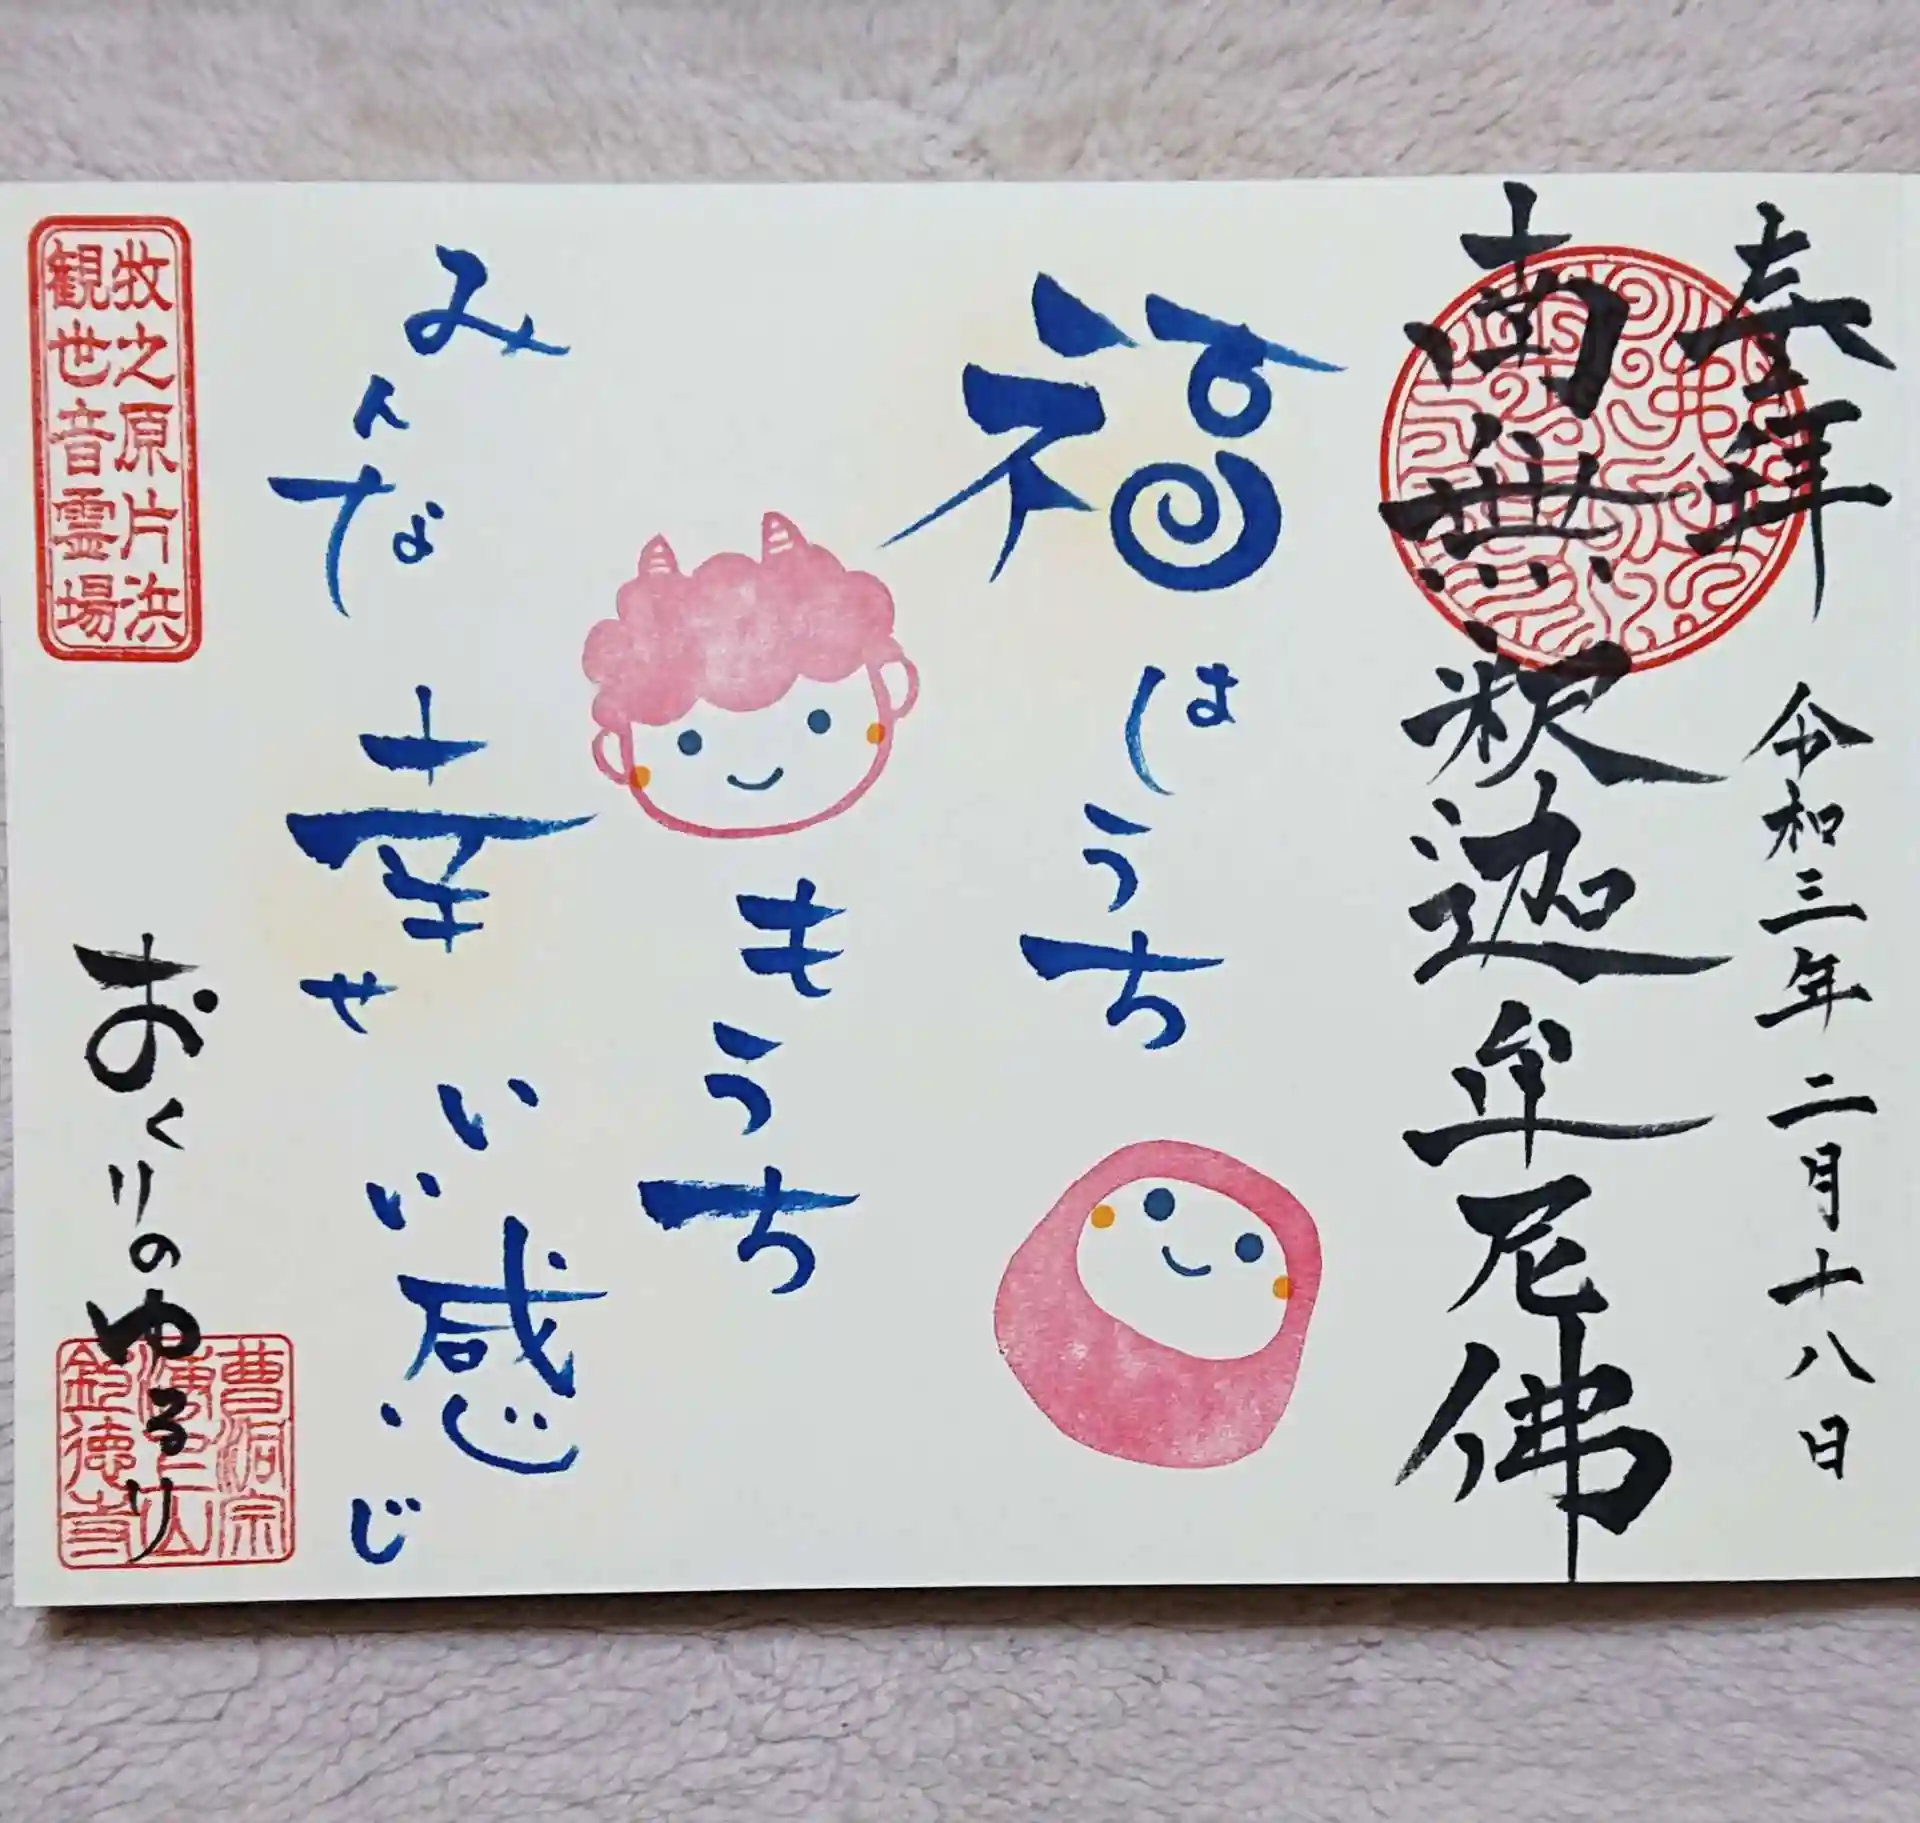 奉拝
令和三年二月十八日
南無釈迦牟尼佛
福はうち
もうち
みんな幸せ
いい感じ
牧之原片浜
観世音霊場
おくりのゆるり
曹洞宗
徳寺